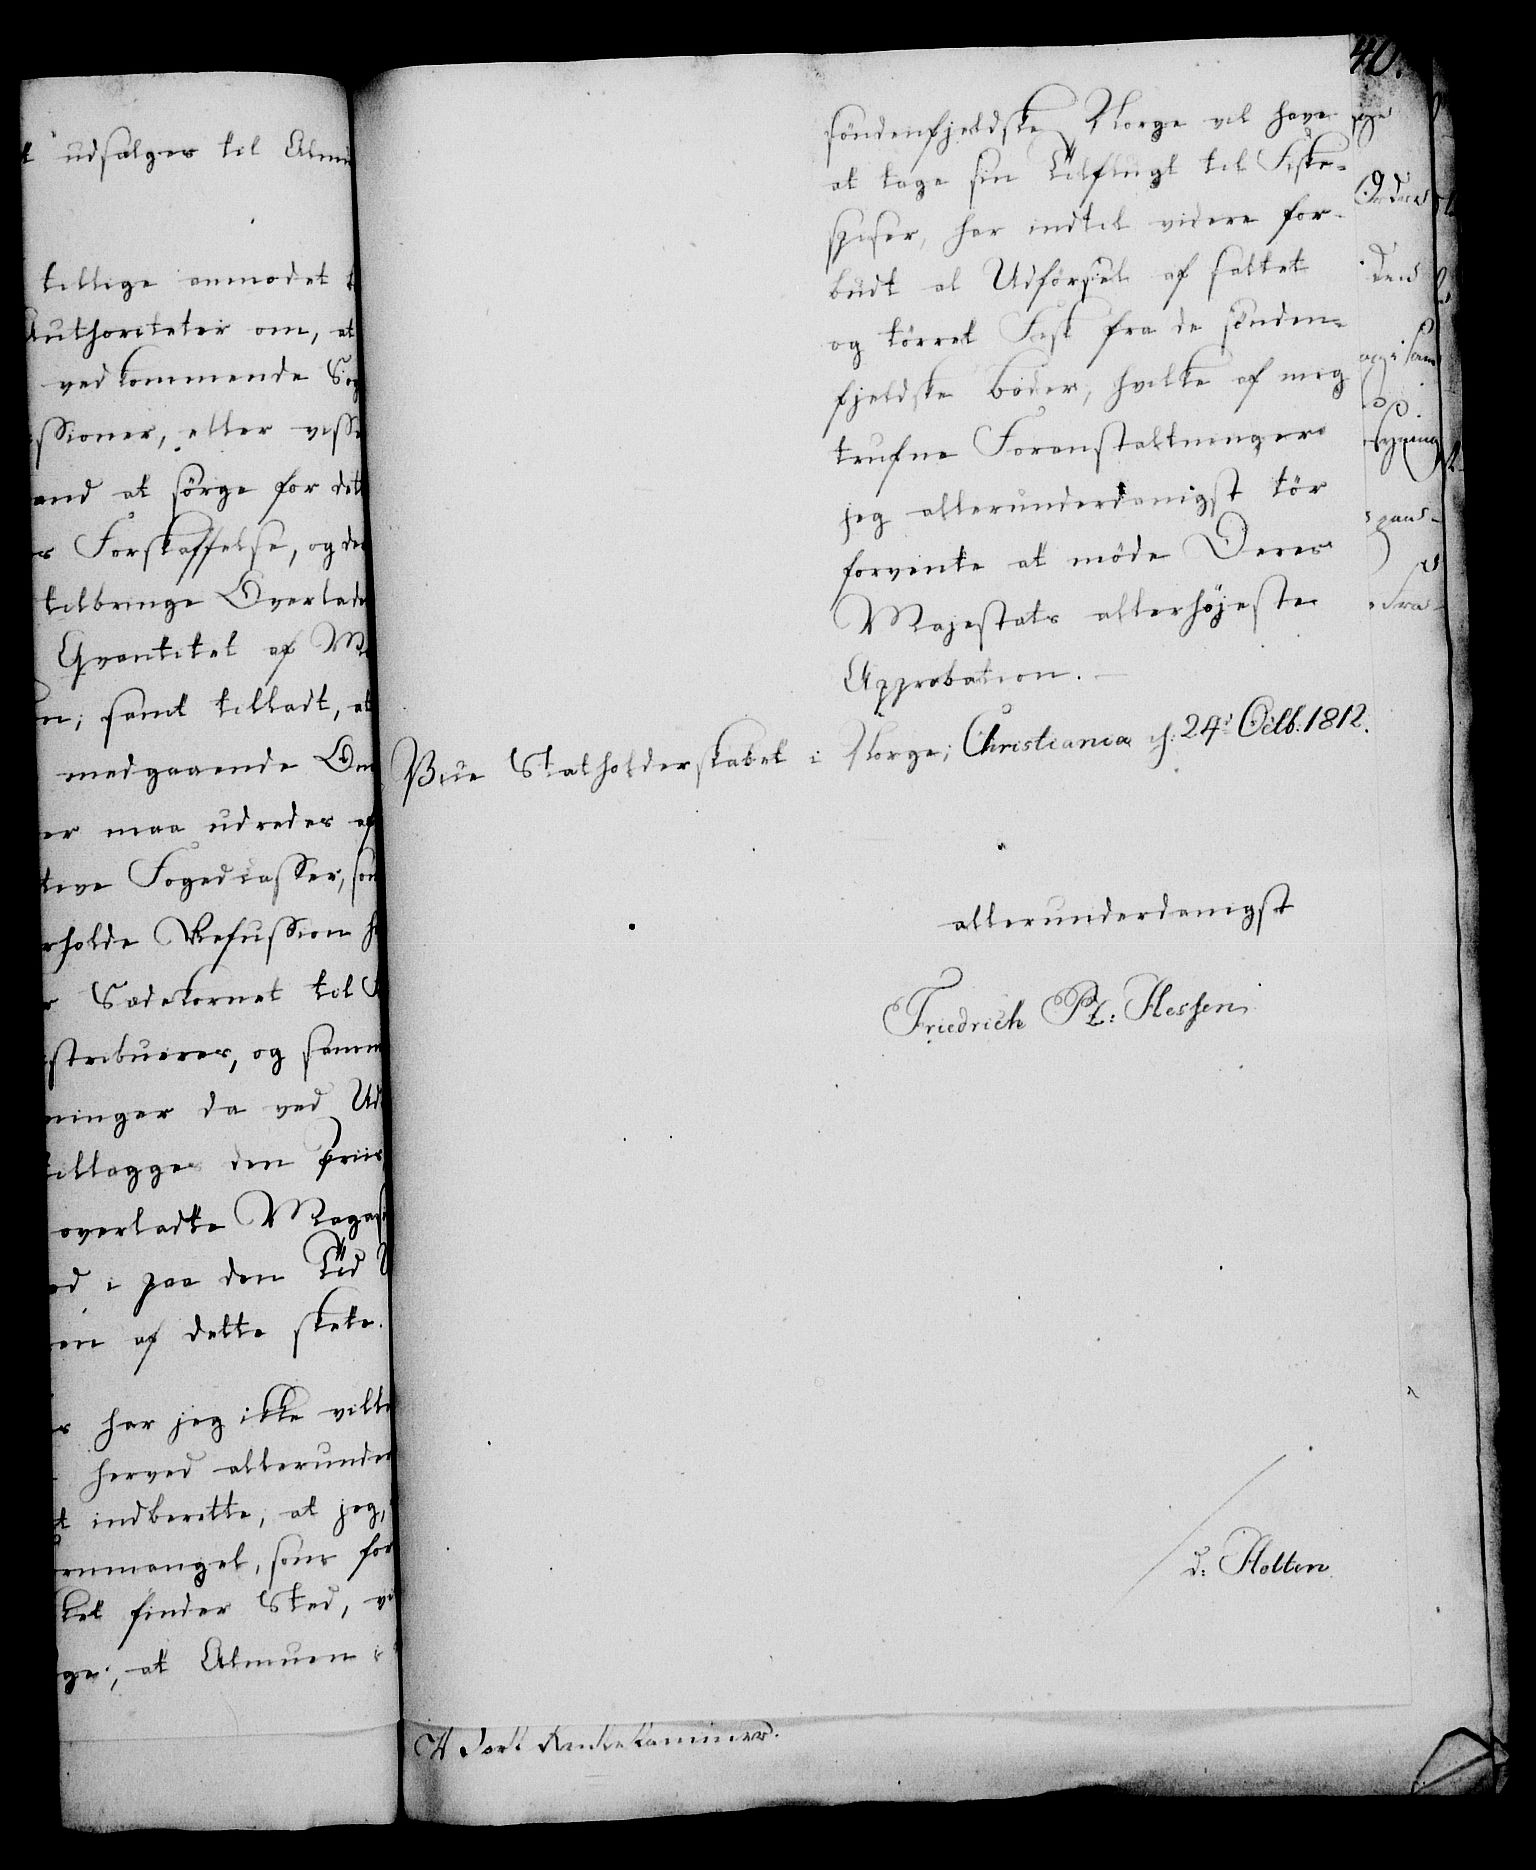 t udsælges til Almu
tillige anmodet
Authoriteter om, at
vedkommende Sog
ssioner, eller visse
and at sörge for det
s Forskaffelse, og de
tilbringe Overlade
Qvantitet af Ma
n; samt tilladt, at
medgaaende Om
er maa udredes af
tive Fogedcasser, som
rholde Refussion
r Sædekornet til
stribueres, og samme
ninger da ved Ud
tillægges den Priis
overladte Magasi
od i paa den Tid
en af dette skete.
r har jeg ikke ville
herved allerunder
t indberette, at jeg,
rnmangel, som for
tet finder Sted, vi
ge, at Almuen i
40.
söndenfjeldske Norge vil have
at tage sin Tilflugt til Fiske-
spiser, har indtil videre for-
budt al Udförsel af saltet
og törret Fisk fra de sönden-
fjeldske Byer, hvilke af mig
trufne Foranstaltninger
jeg allerunderdanigst tör
forvente at möde Deres
Majestæts allerhöjeste
Approbation.
Vice Statholderskabet i Norge; Christiania d. 24de Octb. 1812.
allerunderdanigst
Friedrich Pz: Hessen
d: Holten
Til Rentekammer.